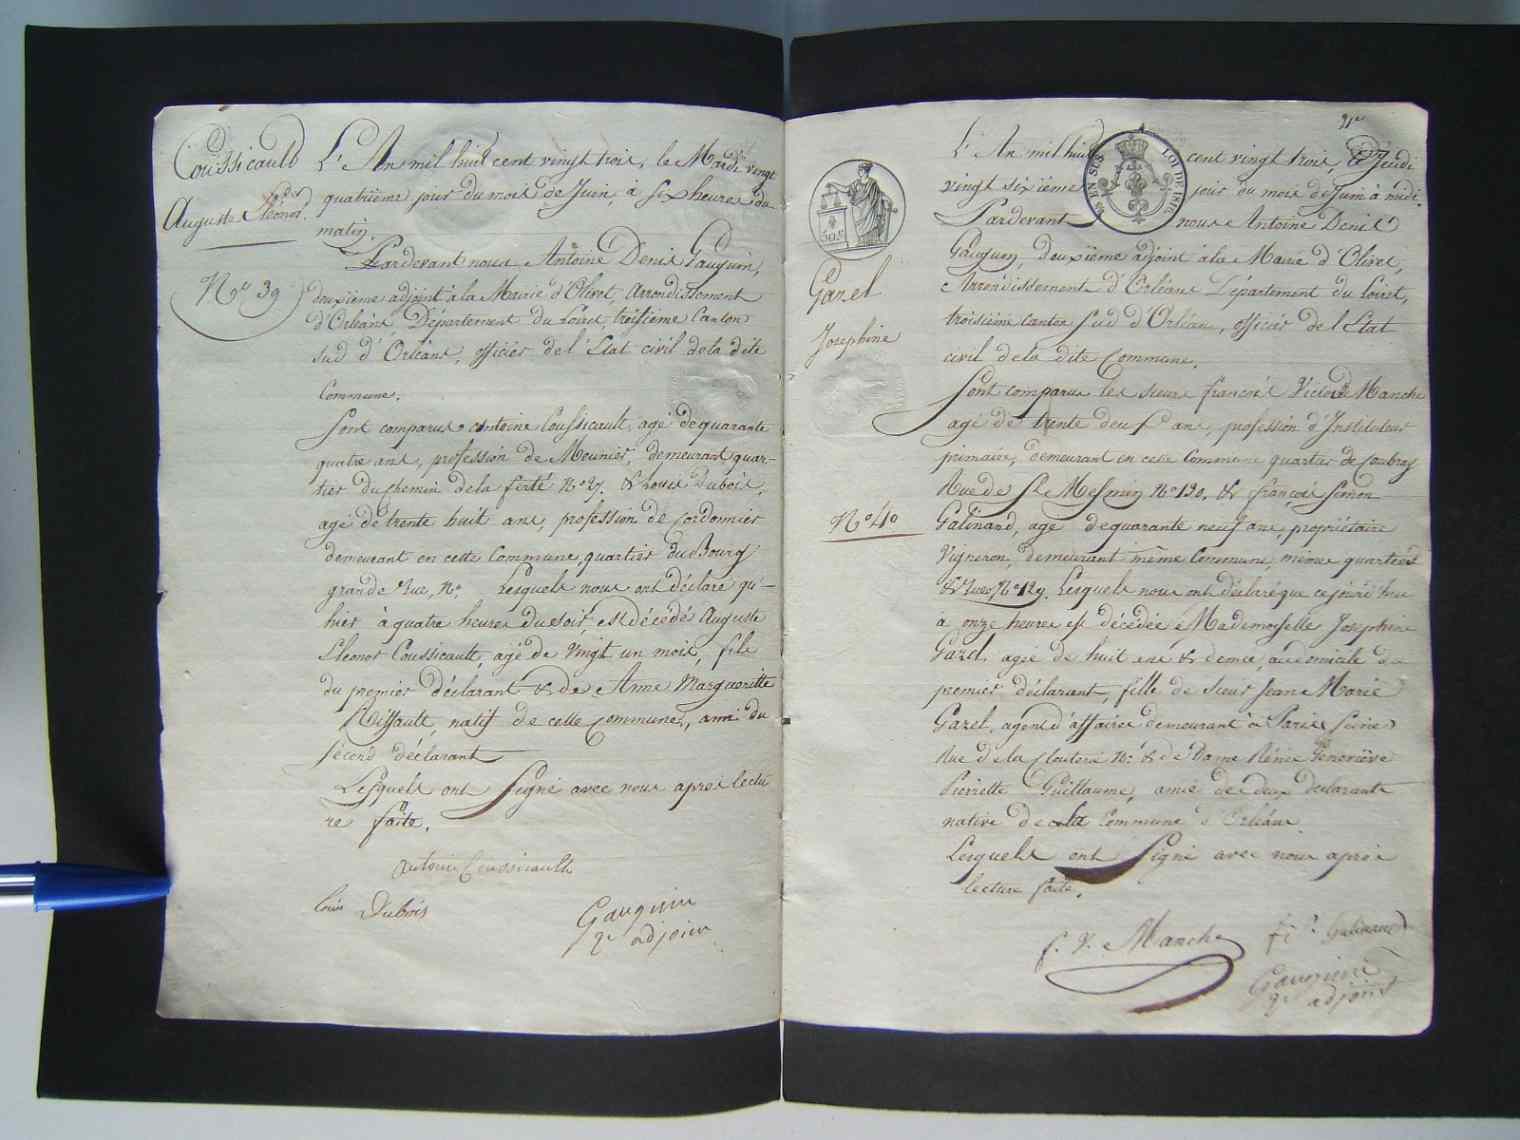 Coussicault
Auguste Eléonor.
N.º 39
L'An mil huit cent vingt trois, le Mardi vingt
quatrième jour du mois de Juin, à six heures du
matin.
Pardevant nous Antoine Denis Gauguin,
deuxième adjoint à la Mairie d'Olivet, Arrondissement
d'Orléans, Département du Loiret, troisième Canton
sud d'Orléans, officier de l'Etat civil de la dite
Commune.
Sont comparus Antoine Coussicault, agé de quarante
quatre ans, profession de Meunier, demeurant quar-
tier du chemin de la ferté N.º 27. & Louis Dubois,
agé de trente huit ans, profession de cordonnier
demeurant en cette Commune, quartier du Bourg
grande Rue, N.º Lesquels nous ont déclaré qu'-
hier à quatre heures du soir, est décédé Auguste
Eléonor Coussicault, agé de vingt un mois, fils
du premier déclarant & de Anne Margueritte
Riffault, natif de cette Commune, ami du
second déclarant
Lesquels ont signé avec nous après lectu
re faite.
Antoine Coussicault
Louis Dubois
Gauguin
2e adjoint
21e
50 c
Gazel
Josephine
N.º 40
L'An mil huit cent vingt trois, le Jeudi
vingt sixième jour du mois de Juin à midi.
Pardevant nous Antoine Denis
Gauguin, deuxième adjoint à la Mairie d'Olivet,
Arrondissement d'Orléans Département du Loiret,
troisième canton sud d'Orléans, officier de l'Etat
civil de la dite Commune.
Sont comparus les sieurs françois Victor Manche
agé de trente deux ans, profession d'Instituteur
primaire, demeurant en cette Commune quartier de
Rue de St Mesmin N.º 130, & françois Simon
Galinand, agé de quarante neuf ans, propriétaire
Vigneron, demeurant même Commune, même quartier
& Rue, N.º 129. Lesquels nous ont déclaré que ce jourd'hui
à onze heures est décédée Mademoiselle Josephine
Gazel, agée de huit ans & demie, au domicile du
premier déclarant, fille de sieur Jean Marie
Gazel, agent d'affaires demeurant à Paris Seine
Rue de la N.º & de Dame Rénée Geneviève
Pierrette Guillaume, amie des deux déclarants
native de la Commune d'Orléans.
Lesquels ont signé avec nous après
lecture faite.
f. V. Manche
fs. Galinand
Gauguin
2e adjoint